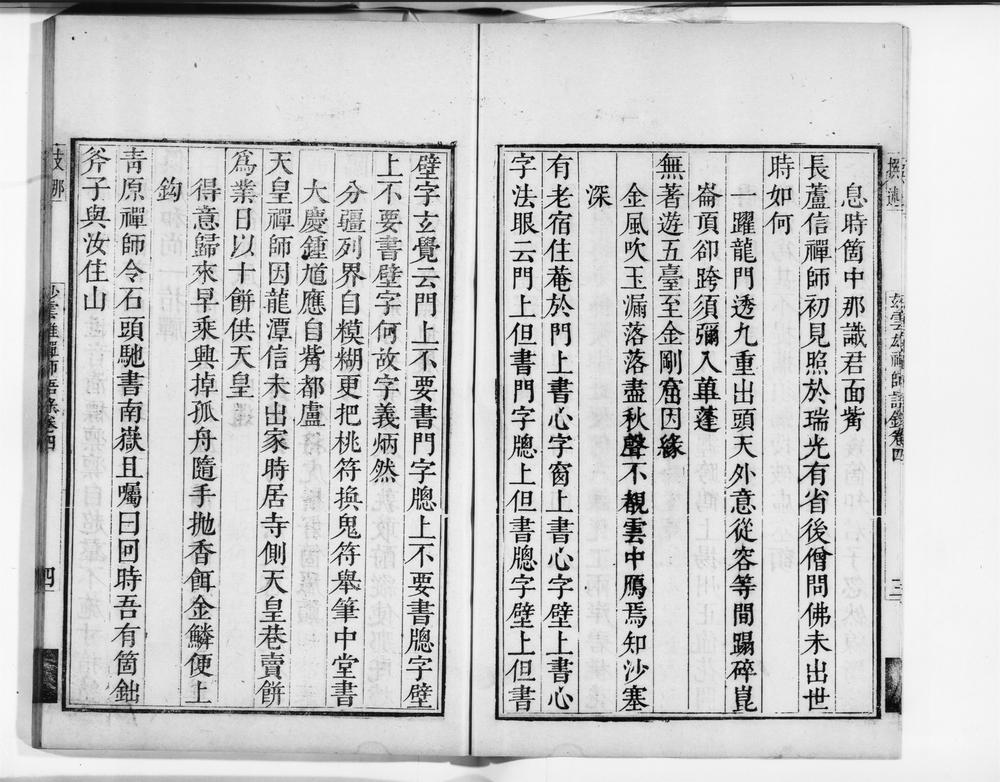 息時箇中那識君面觜
長蘆信禪師初見照於瑞光有省後僧問佛未出世
時如何
躍龍門透九重出頭天外意從容等閒蹋碎崑
崙頂卻跨須彌入華蓬
無著遊五臺至金剛窟因緣
金風吹玉漏落落盡秋聲不覩雲中鴈焉知沙塞
深
有老宿住菴於門上書心字窗上書心字壁上書心
字法眼云門上但書門字牕上但書牕字壁上但書
壁字玄覺云門上不要書門字牕上不要書牕字壁
上不要書壁字何故字義炳然
分疆列界自模糊更把桃符換鬼符舉筆中堂書
大慶鍾馗應自觜都盧
天皇禪師因龍潭信未出家時居寺側天皇巷賣餅
爲業日以十餅供天皇
得意歸來早乘興掉孤舟隨手拋香餌金鱗便上
鈎
靑原禪師令石頭馳書南嶽且囑曰回時吾有箇鈯
斧子與汝住山
四
三